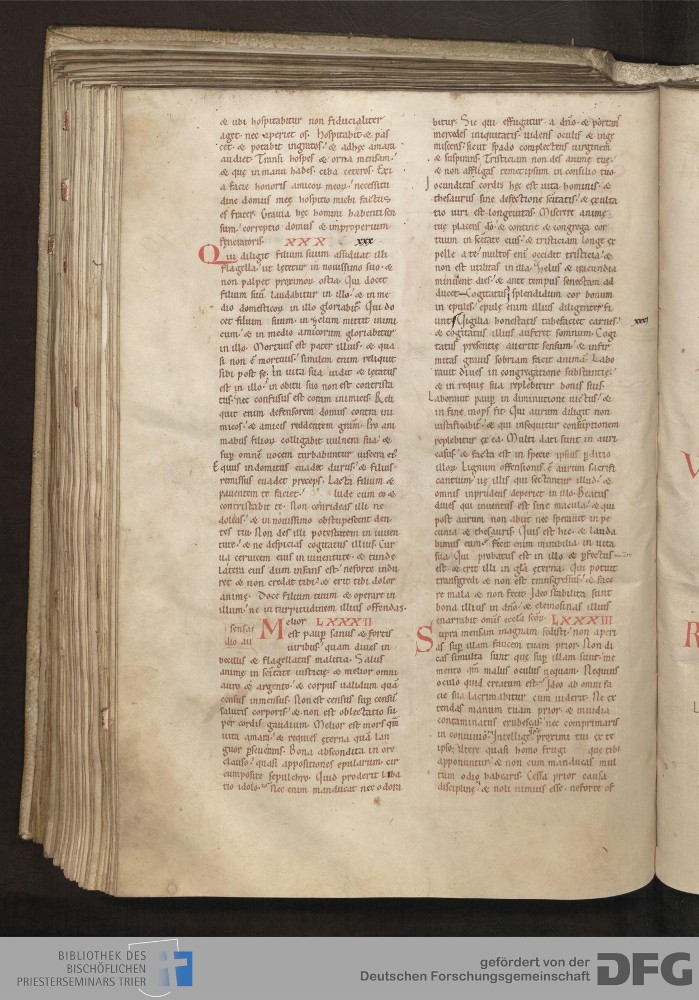 & ubi hospitabitur non fiducialiter
aget. nec aperiet os. Hospitabit & pas
cet. & potabit ingratos. & adhęc amara
audiet. Transi hospes & orna mensam.
& quę in manu habes. ciba ceteros. Exi
a facie honoris amicorum meorum. necessitu
dine domus meę hospitio michi factus
es frater. Gravia hęc homini habenti sen
sum. correptio domus & improperium
feneratoris. XXX xxx
Qui diligit filium suum assiduat illi
flagella. ut lętetur in novissimo suo. &
non palpet proximorum ostia. Qui docet
filium suum laudabitur in illo. & in me
dio domesticorum in illo gloriabitur. Qui do
cet filium suum. in zelum mittit inimi
cum. & in medio amicorum gloriabitur
in illo. Mortuus est pater illius. & qua
si non est mortuus. similem enim reliquit
sibi post se. In vita sua vidit & lętatus
est in illo. in obitu suo non est contrista
tus. nec confusus est coram inimicis. Reli
quit enim defensorem domus contra ini
micos. & amicis reddentem gratiam. Pro ani
mabus filiorum colligabit vulnera sua. &
super omnem vocem turbabuntur viscera eius.
Equus indomitus evadet durus. & filius
remissus evadet pręceps. Lacta filium &
paventem te faciet. lude cum eo &
contristabit te. Non corrideas illi ne
doleas. & in novissimo obstupescent den
tes tui. Non des illi potestatem in iuven
tute. & ne despicias cogitatus illius. Cur
va cervicem eius in iuventute. & tunde
latera eius dum infans est. ne forte indu
ret & non credat tibi. & erit tibi dolor
animę. Doce filium tuum & operare in
illum. ne in turpitudinem illius offendas.
Melior LXXXII
est pauper sanus & fortis
viribus. quam dives in
becillis & flagellatus malitia. Salus
animę in sanctitate iusticię. & melior omni
auro & argento. & corpus validum quam
census inmensus. Non est census super censum
salutis corporis. & non est oblectatio su
per cordis gaudium. Melior est mors quam
vita amara. & requies ęterna quam lan
guor perseverans. Bona abscondita in ore
clauso. quasi appositiones epularum. cir
cumposite sepulchro. Quid proderit liba
tio idolo. Nec enim manducat nec odora
bitur. Sic qui effugatur a domino. & portans
mercedes iniquitatis. videns oculis & inge
miscens. sicut spado complectens virginem
& suspirans. Tristiciam non des animę tuę.
& non affligas temetipsum in consilio tuo.
Iocunditas cordis hęc est vita hominis. &
thesaurus sine defectione sanctitatis. & exulta
tio viri est longevitas. Miserere animę
tuę placens deo. & contine & congrega cor
tuum in sanctitate eius. & tristiciam longe ex
pelle a te. multos enim occidit tristicia. &
non est utilitas in illa. Zelus & iracundia
minuent dies. & ante tempus senectam ad
ducet cogitatus. Splendidum cor bonum
in epulis. epulę enim illius diligenter fi
unt. Vigilia honestatis tabefaciet carnes. xxxi
& cogitatus illius aufert somnum. Cogi
tatus presentię avertit sensum. & infir
mitas gravis sobriam facit animam. Labo
ravit dives in congregatione substantię.
& in requie sua replebitur bonis suis.
Laboravit pauper in diminutione victus. &
in fine inops fit. Qui aurum diligit non
iustificabitur. & qui insequitur consumptionem
replebitur ex ea. Multi dati sunt in auri
casus. & facta est in specie ipsius perditio
illorum. Lignum offensionis est aurum sacrifi
cantium. vę illis qui sectantur illud. &
omnis inprudens deperiet in illo. Beatus
dives qui inventus est sine macula. & qui
post aurum non abiit nec speravit in pe
cunia & thesauris. Quis est hic. & lauda
bimus eum. fecit enim mirabilia in vita
sua. Qui probatus est in illo & perfectus
est. & erit illi in gloria ęterna. Qui potuit
transgredi & non est transgressus. & face
re mala & non fecit. Ideo stabilita sunt
bona illius in domino. & elemosinas illius
enarrabit omnis ecclesia sanctorum. LXXXIII
Supra mensam magnam sedisti. non aperi
as super illam faucem tuam prior. Non di
cas si multa sunt quę super illam sunt. me
mento quoniam malus oculus nequam. Nequius
oculo quid creatum est. Ideo ab omni fa
cie sua lacrimabitur cum viderit. Ne ex
tendas manum tuam prior. & invidia
contaminatus erubescas. nec comprimaris
in convivio. Intellige quę proximi tui ex te
ipso. Utere quasi homo frugi que tibi
apponuntur. & non cum manducas mul
tum odio habearis. Cessa prior causa
disciplinę. & noli nimius esse. ne forte of
BIBLIOTHEK DES
BISCHÖFLICHEN
PRIESTERSEMINARS TRIER
gefördert von der
Deutschen Forschungsgemeinschaft DFG